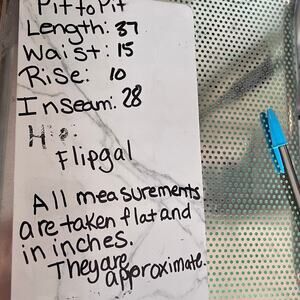 Pit to Pit
Length: 37
Waist: 15
Rise: 10
Inseam: 28
Flipgal
All measurements
are taken flat and
in inches.
They are approximate.